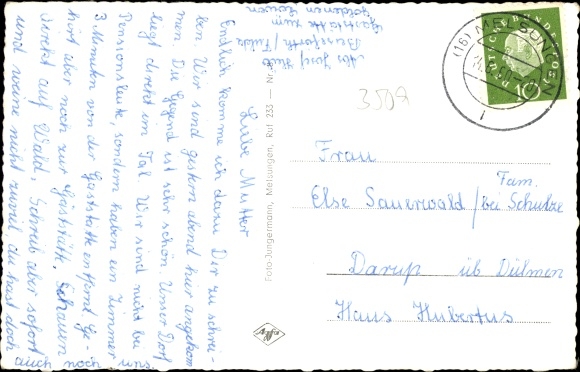 Abs. Josef Heib
Beiseförth/Fulda
Gaststätte zum
goldenen Löwen
Liebe Mutter
Endlich komme ich dazu Dir zu schrei-
ben. Wir sind gestern abend hier angekom
men. Die Gegend ist sehr schön. Unser Dorf
liegt direkt im Tal. Wir sind nicht bei
Pensionsleute, sondern haben ein Zimmer
3 Minuten von der Gaststätte entfernt. Ge-
hört aber noch zur Gaststätte. Schauen
direkt auf Wald. Schreib aber sofort
und weine nicht zuviel du hast doch
auch noch uns.
Foto-Jungermann, Melsungen, Ruf 233 — Nr.
Agfa
3509
(16) MELSUNGEN
DEUTSCHE BUNDESPOST
10
Frau
Else Sauerwald / bei Fam. Schulze
Darup üb Dülmen
Haus Hubertus